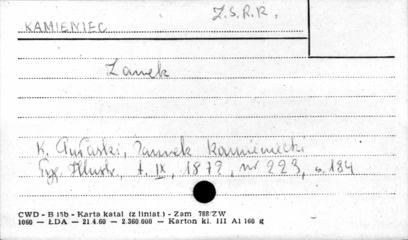 Z.S.R.R.
KAMIENIEC
Zamek
K. Pułaski, Zamek kamieniecki
Tyg. Illustr., t. IX, 1872, nr 223, s. 184
CWD - B 15b - Karta katal (z liniat.) - Zam 788/ZW
1060 — ŁDA — 21.4.60 — 2.360.600 — Karton kl. III A1 160 g